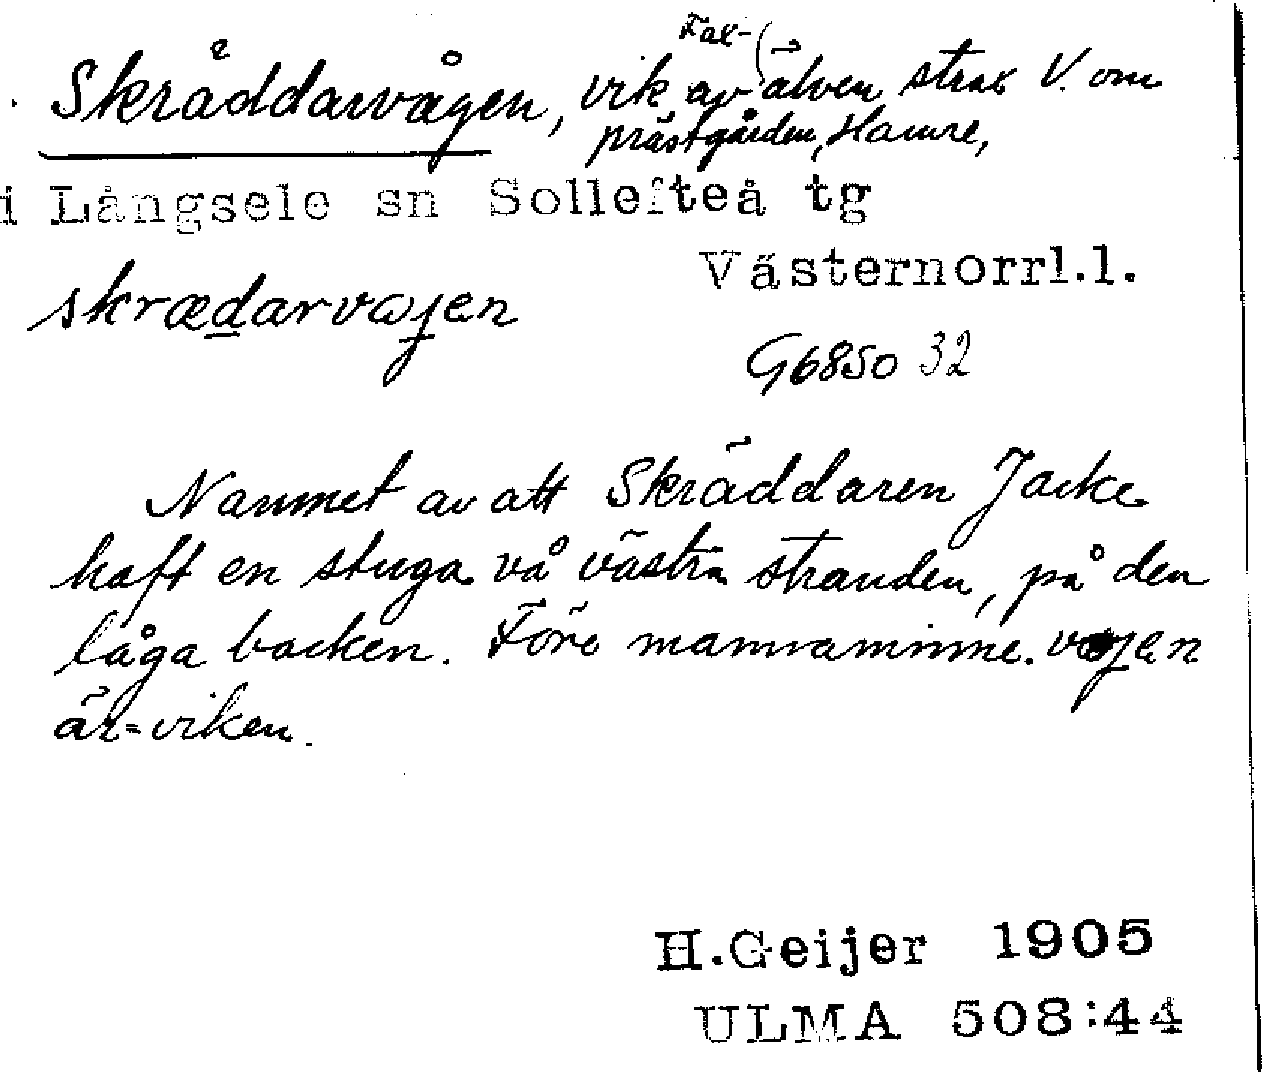 Skräddarvågen, vik av Fax-älven strax V. om
prästgården, Hamre,
i Långsele sn Sollefteå tg
Västernorrl.l.
skræd̲arvɷjen
G6850 32
Namnet av att Skräddaren Jacke
haft en stuga vå västra stranden, på den
låga backen. Före mannaminne. vɷjen
är = viken.
H.Geijer 1905
ULMA 508:44